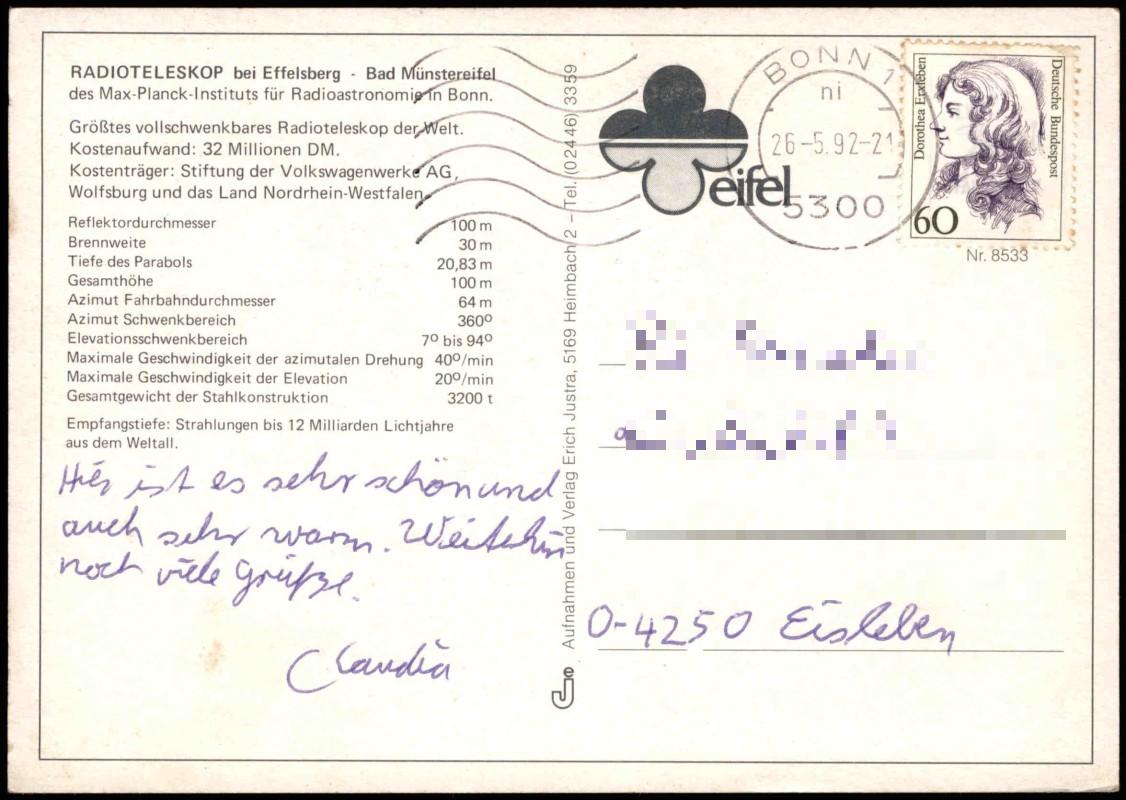 RADIOTELESKOP bei Effelsberg - Bad Münstereifel
des Max-Planck-Instituts für Radioastronomie in Bonn.
Größtes vollschwenkbares Radioteleskop der Welt.
Kostenaufwand: 32 Millionen DM.
Kostenträger: Stiftung der Volkswagenwerke AG,
Wolfsburg und das Land Nordrhein-Westfalen.
Reflektordurchmesser 100 m
Brennweite 30 m
Tiefe des Parabols 20,83 m
Gesamthöhe 100 m
Azimut Fahrbahndurchmesser 64 m
Azimut Schwenkbereich 360º
Elevationsschwenkbereich 7º bis 94º
Maximale Geschwindigkeit der azimutalen Drehung 40º/min
Maximale Geschwindigkeit der Elevation 20º/min
Gesamtgewicht der Stahlkonstruktion 3200 t
Empfangstiefe: Strahlungen bis 12 Milliarden Lichtjahre
aus dem Weltall.
Hier ist es sehr schön und
auch sehr warm. Weiterhin
noch viele Grüße.
Claudia
Aufnahmen und Verlag Erich Justra, 5169 Heimbach 2 – Tel. (02446) 3359
eifel
BONN 1
ni
26.-5.92-21
5300
Dorothea Erxleben
Deutsche Bundespost
60
Nr. 8533
O-4250 Eisleben